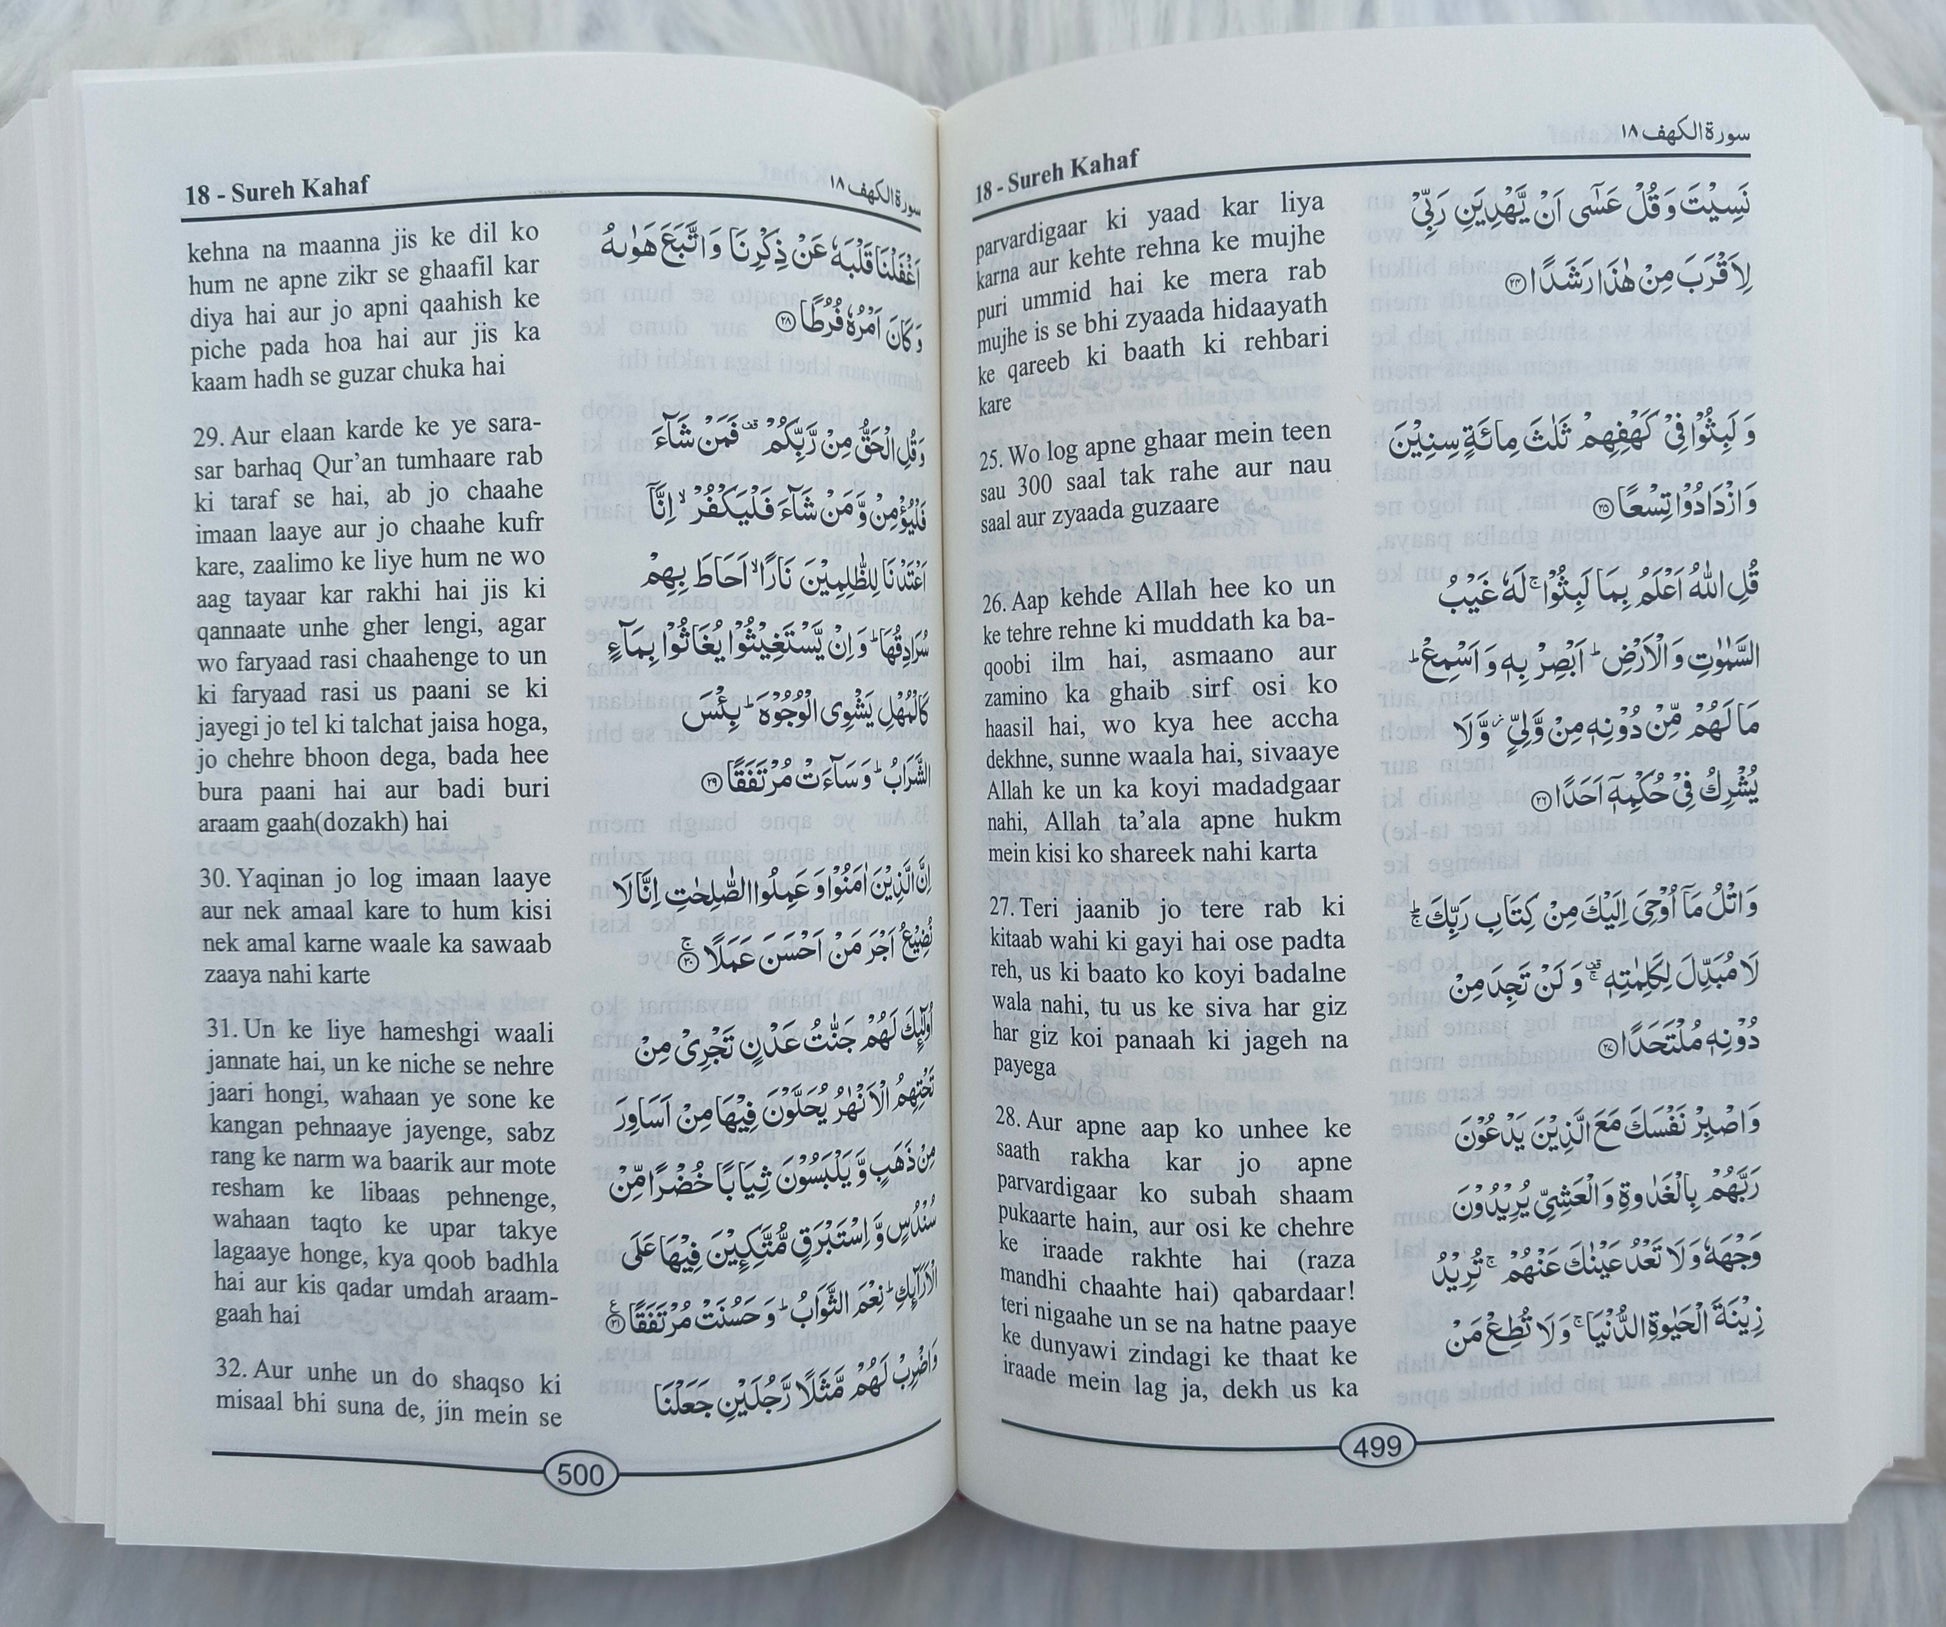 18 - Sureh Kahaf
سورة الكهف ١٨
parvardigaar ki yaad kar liya
karna aur kehte rehna ke mujhe
puri ummid hai ke mera rab
mujhe is se bhi zyaada hidaayath
ke qareeb ki baath ki rehbari
kare
25. Wo log apne ghaar mein teen
sau 300 saal tak rahe aur nau
saal aur zyaada guzaare
26. Aap kehde Allah hee ko un
ke tehre rehne ki muddath ka ba-
qoobi ilm hai, asmaano aur
zamino ka ghaib sirf osi ko
haasil hai, wo kya hee accha
dekhne, sunne waala hai, sivaaye
Allah ke un ka koyi madadgaar
nahi, Allah ta'ala apne hukm
mein kisi ko shareek nahi karta
27. Teri jaanib jo tere rab ki
kitaab wahi ki gayi hai ose padta
reh, us ki baato ko koyi badalne
wala nahi, tu us ke siva har giz
har giz koi panaah ki jageh na
payega
28. Aur apne aap ko unhee ke
saath rakha kar jo apne
parvardigaar ko subah shaam
pukaarte hain, aur osi ke chehre
ke iraade rakhte hai (raza
mandhi chaahte hai) qabardaar!
teri nigaahe un se na hatne paaye
ke dunyawi zindagi ke thaat ke
iraade mein lag ja, dekh us ka
نَسِيْتَ وَقُلْ عَسٰٓى اَنْ يَّهْدِيَنِ رَبِّيْ
لِاَقْرَبَ مِنْ هٰذَا رَشَدًا ﴿٢٤﴾
وَلَبِثُوْا فِيْ كَهْفِهِمْ ثَلٰثَ مِائَةٍ سِنِيْنَ
وَازْدَادُوْا تِسْعًا ﴿٢٥﴾
قُلِ اللّٰهُ اَعْلَمُ بِمَا لَبِثُوْا ۚ لَهٗ غَيْبُ
السَّمٰوٰتِ وَالْاَرْضِ ؕ اَبْصِرْ بِهٖ وَاَسْمِعْ ؕ
مَا لَهُمْ مِّنْ دُوْنِهٖ مِنْ وَّلِيٍّ ۫ وَّلَا
يُشْرِكُ فِيْ حُكْمِهٖٓ اَحَدًا ﴿٢٦﴾
وَاتْلُ مَآ اُوْحِيَ اِلَيْكَ مِنْ كِتَابِ رَبِّكَ ۚؕ
لَا مُبَدِّلَ لِكَلِمٰتِهٖ ۚ۫ وَلَنْ تَجِدَ مِنْ
دُوْنِهٖ مُلْتَحَدًا ﴿٢٧﴾
وَاصْبِرْ نَفْسَكَ مَعَ الَّذِيْنَ يَدْعُوْنَ
رَبَّهُمْ بِالْغَدٰوةِ وَالْعَشِيِّ يُرِيْدُوْنَ
وَجْهَهٗ وَلَا تَعْدُ عَيْنٰكَ عَنْهُمْ ۚ تُرِيْدُ
زِيْنَةَ الْحَيٰوةِ الدُّنْيَا ۚ وَلَا تُطِعْ مَنْ
499
18 - Sureh Kahaf
سورة الكهف ١٨
kehna na maanna jis ke dil ko
hum ne apne zikr se ghaafil kar
diya hai aur jo apni qaahish ke
piche pada hoa hai aur jis ka
kaam hadh se guzar chuka hai
29. Aur elaan karde ke ye sara-
sar barhaq Qur'an tumhaare rab
ki taraf se hai, ab jo chaahe
imaan laaye aur jo chaahe kufr
kare, zaalimo ke liye hum ne wo
aag tayaar kar rakhi hai jis ki
qannaate unhe gher lengi, agar
wo faryaad rasi chaahenge to un
ki faryaad rasi us paani se ki
jayegi jo tel ki talchat jaisa hoga,
jo chehre bhoon dega, bada hee
bura paani hai aur badi buri
araam gaah(dozakh) hai
30. Yaqinan jo log imaan laaye
aur nek amaal kare to hum kisi
nek amal karne waale ka sawaab
zaaya nahi karte
31. Un ke liye hameshgi waali
jannate hai, un ke niche se nehre
jaari hongi, wahaan ye sone ke
kangan pehnaaye jayenge, sabz
rang ke narm wa baarik aur mote
resham ke libaas pehnenge,
wahaan taqto ke upar takye
lagaaye honge, kya qoob badhla
hai aur kis qadar umdah araam-
gaah hai
32. Aur unhe un do shaqso ki
misaal bhi suna de, jin mein se
اَغْفَلْنَا قَلْبَهٗ عَنْ ذِكْرِنَا وَاتَّبَعَ هَوٰىهُ
وَكَانَ اَمْرُهٗ فُرُطًا ﴿٢٨﴾
وَقُلِ الْحَقُّ مِنْ رَّبِّكُمْ ۫ فَمَنْ شَآءَ
فَلْيُؤْمِنْ وَّمَنْ شَآءَ فَلْيَكْفُرْ ۙ اِنَّآ
اَعْتَدْنَا لِلظّٰلِمِيْنَ نَارًا ۙ اَحَاطَ بِهِمْ
سُرَادِقُهَا ؕ وَاِنْ يَّسْتَغِيْثُوْا يُغَاثُوْا بِمَآءٍ
كَالْمُهْلِ يَشْوِى الْوُجُوْهَ ؕ بِئْسَ
الشَّرَابُ ؕ وَسَآءَتْ مُرْتَفَقًا ﴿٢٩﴾
اِنَّ الَّذِيْنَ اٰمَنُوْا وَعَمِلُوا الصّٰلِحٰتِ اِنَّا لَا
نُضِيْعُ اَجْرَ مَنْ اَحْسَنَ عَمَلًا ﴿٣٠﴾ۚ
اُولٰٓئِكَ لَهُمْ جَنّٰتُ عَدْنٍ تَجْرِيْ مِنْ
تَحْتِهِمُ الْاَنْهٰرُ يُحَلَّوْنَ فِيْهَا مِنْ اَسَاوِرَ
مِنْ ذَهَبٍ وَّيَلْبَسُوْنَ ثِيَابًا خُضْرًا مِّنْ
سُنْدُسٍ وَّاِسْتَبْرَقٍ مُّتَّكِـِٕيْنَ فِيْهَا عَلَى
الْاَرَآئِكِ ؕ نِعْمَ الثَّوَابُ ؕ وَحَسُنَتْ مُرْتَفَقًا ﴿٣١﴾ ع
وَاضْرِبْ لَهُمْ مَّثَلًا رَّجُلَيْنِ جَعَلْنَا
500